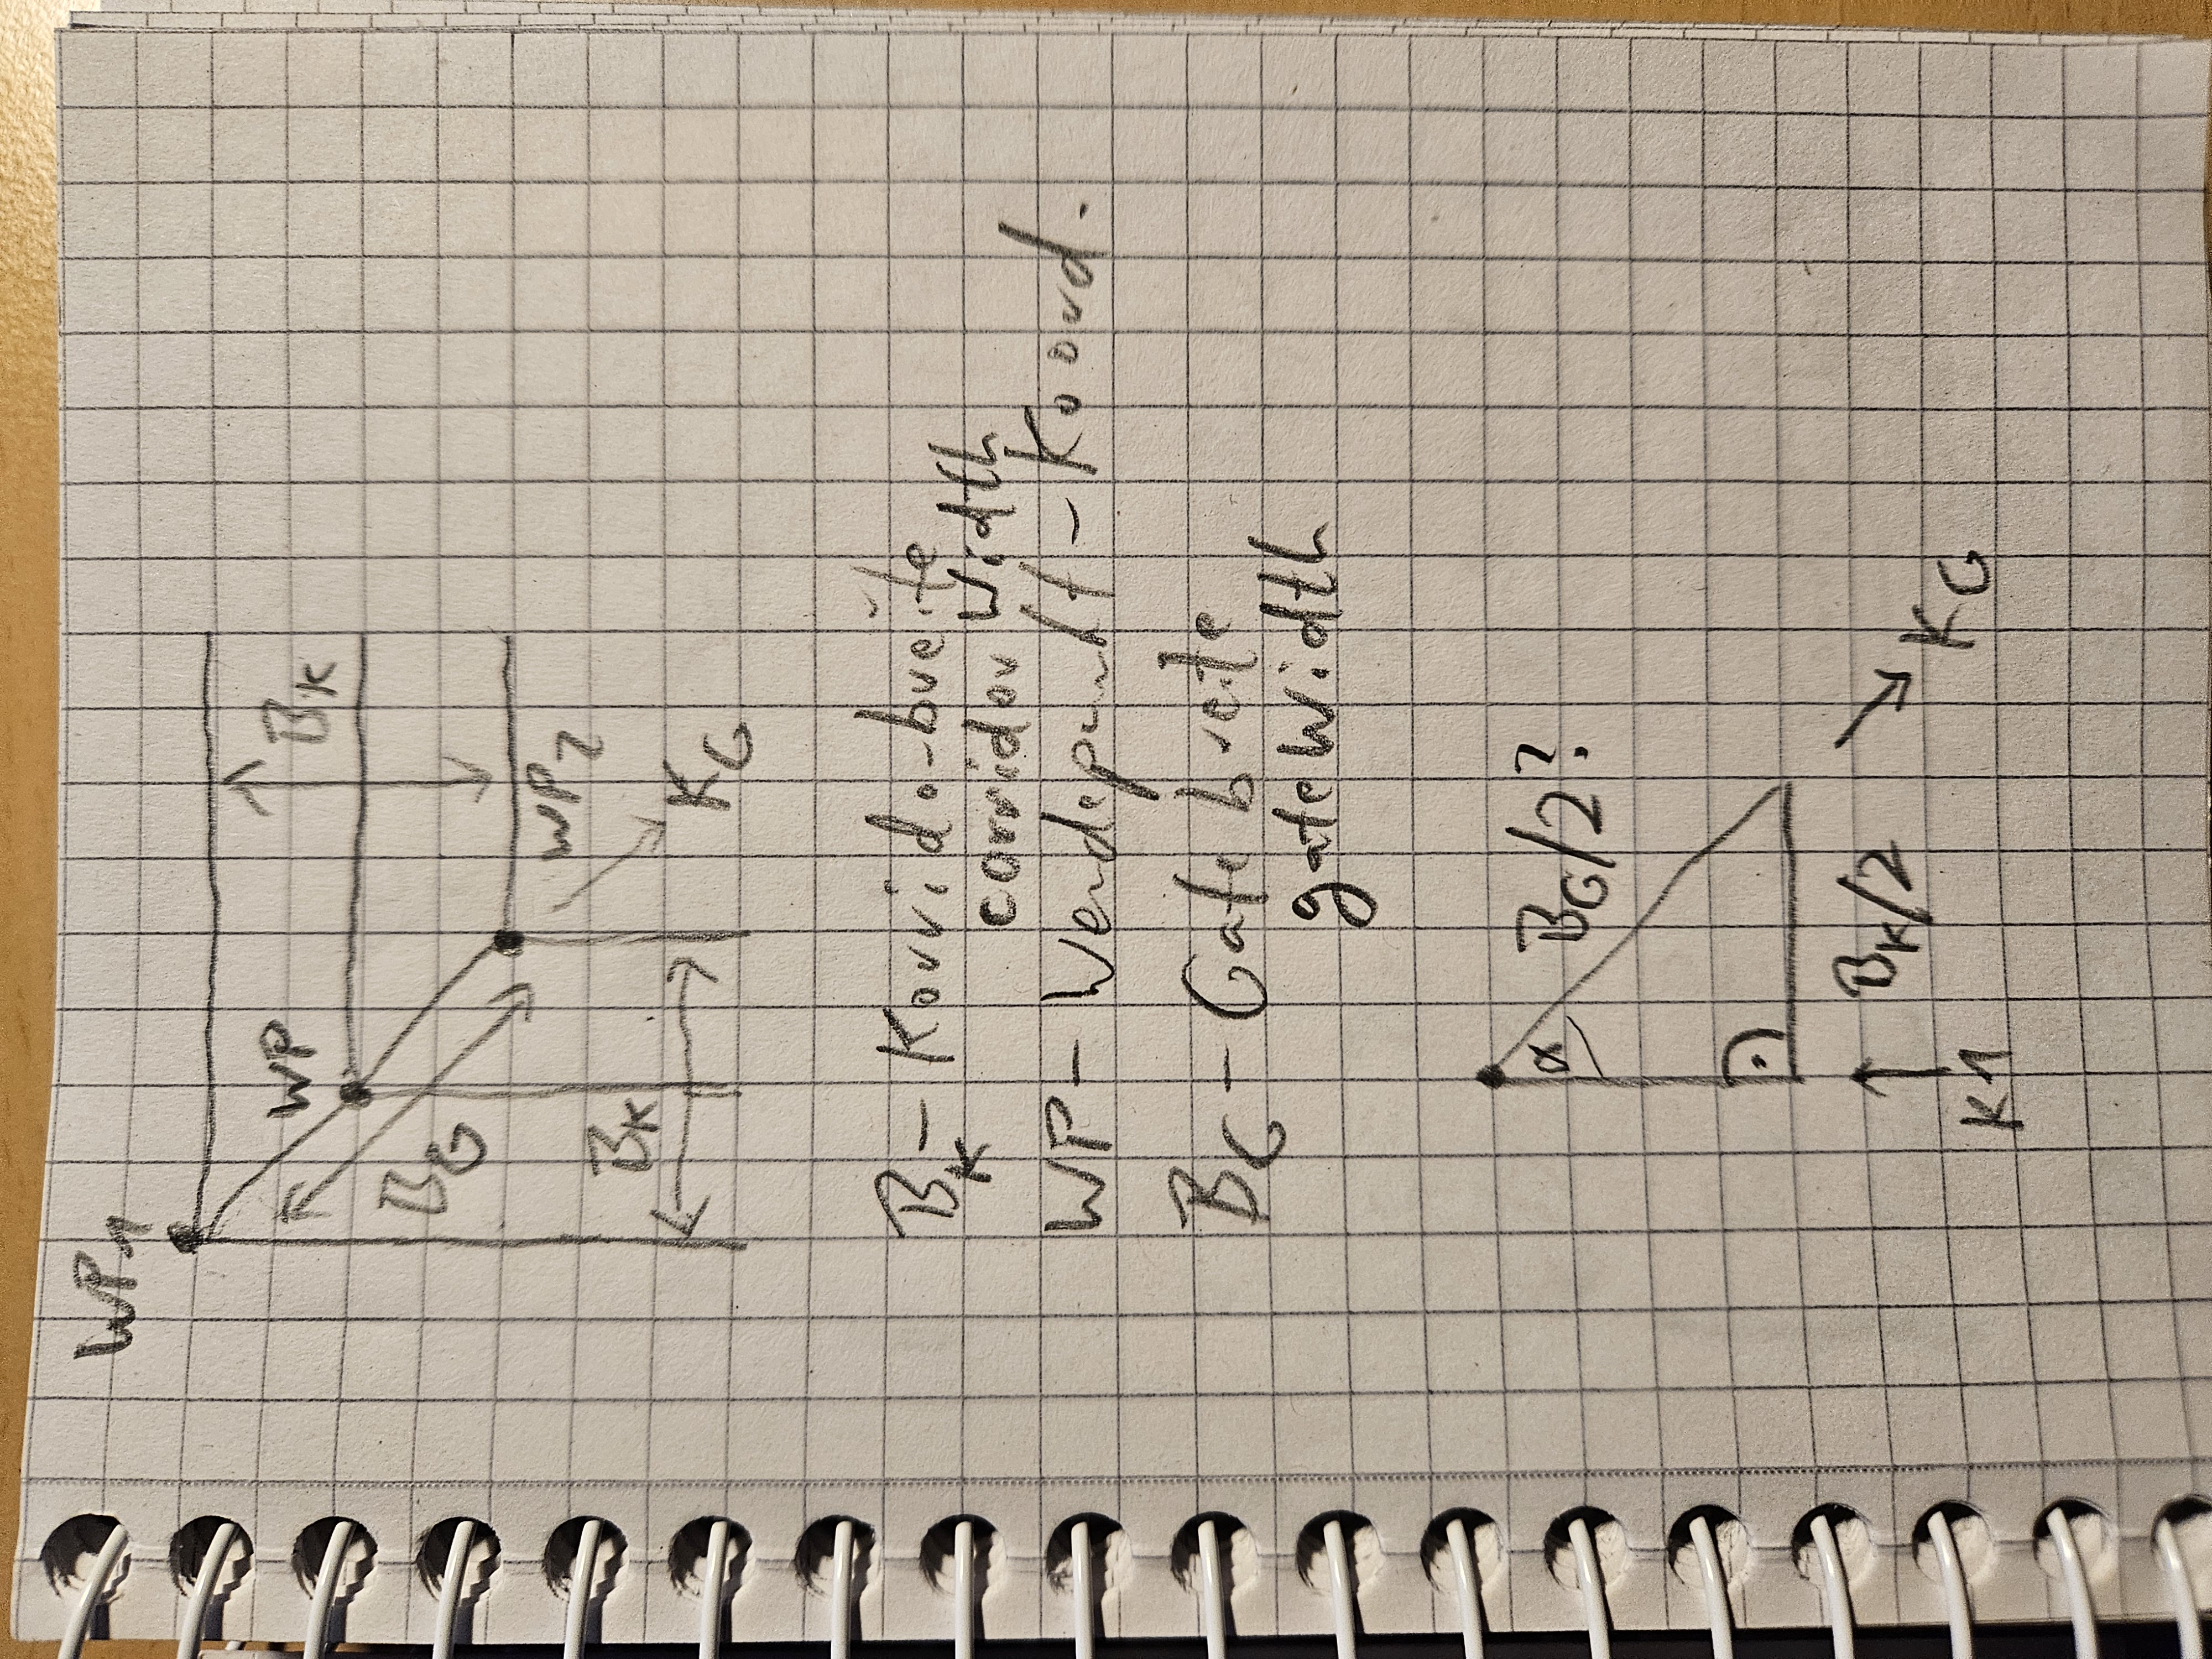 WP1
WP
BK
BG
WP2
BK
KG
BK - Korridorbreite
corridor Width
WP - Wendepunkt - Koord.
BG - Gate breite
gate Width
α
BG/2?
BK/2
K1
KG